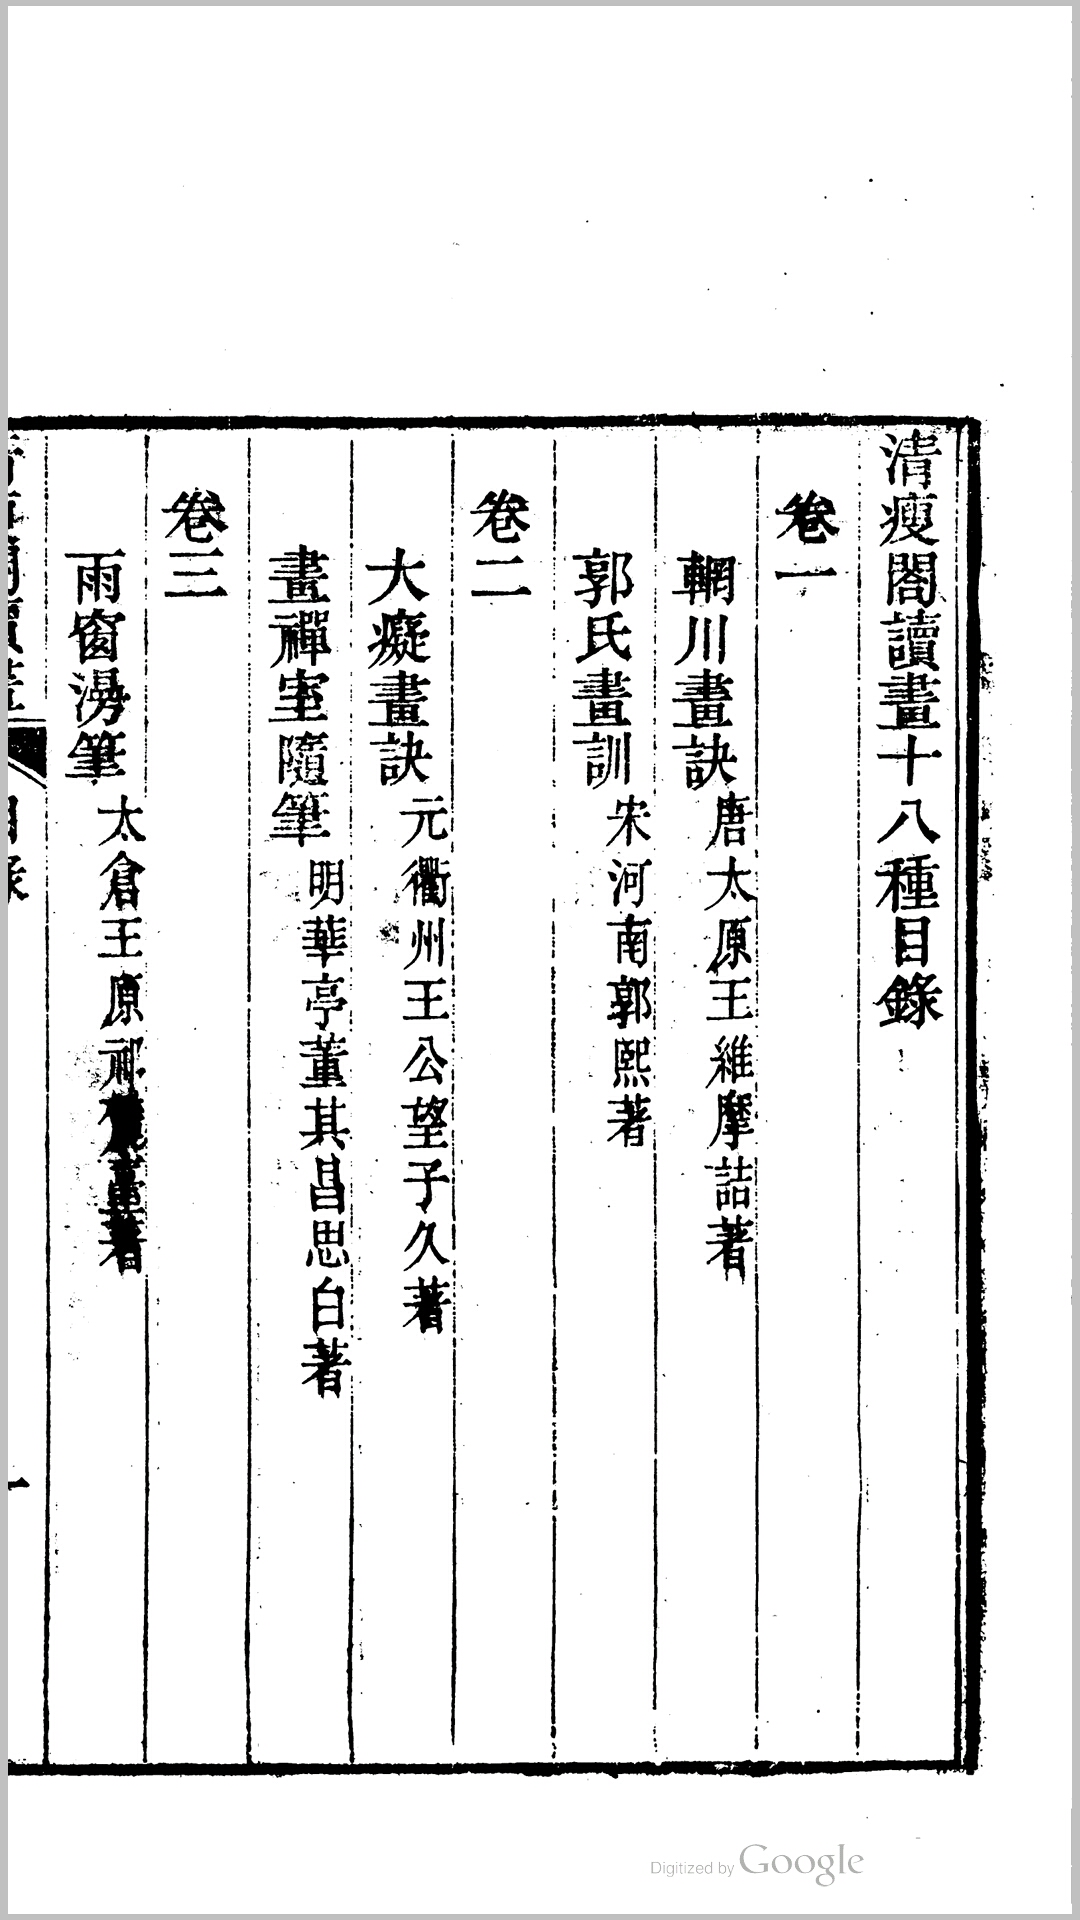 清瘦閣讀畫十八種目錄
卷一
輞川畫訣 唐太原王維摩詰著
郭氏畫訓 宋河南郭熙著
卷二
大癡畫訣 元衢州王公望子久著
畫禪室隨筆 明華亭董其昌思白著
卷三
雨窗漫筆 太倉王原祁 臺著
目錄
一
Digitized by Google